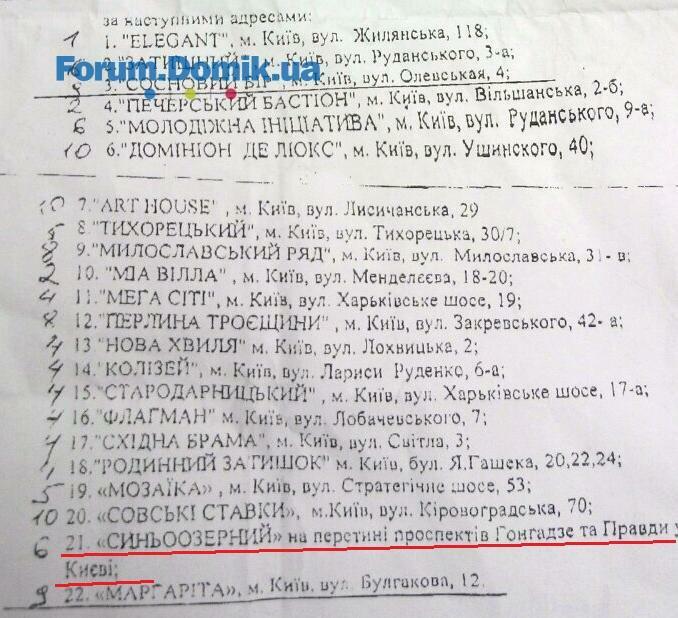 за наступними адресами:
1 1. "ELEGANT", м. Київ, вул. Жилянська, 118;
6 2. "ЗАТИШНИЙ", м. Київ, вул. Руданського, 3-а;
Forum.Domik.ua
3. "СОСНОВИЙ БІР", м. Київ, вул. Олевськая, 4;
2 4. "ПЕЧЕРСЬКИЙ БАСТІОН", м. Київ, вул. Вільшанська, 2-б;
6 5. "МОЛОДІЖНА ІНІЦІАТИВА", м. Київ, вул. Руданського, 9-а;
10 6. "ДОМІНІОН ДЕ ЛЮКС", м. Київ, вул. Ушинского, 40;
10 7."ART HOUSE" , м. Київ, вул. Лисичанська, 29
5 8."ТИХОРЕЦЬКИЙ", м. Київ, вул. Тихорецька, 30/7;
8 9."МИЛОСЛАВСЬКИЙ РЯД", м. Київ, вул. Милославська, 31- в;
2 10. "МІА ВІЛЛА" , м. Київ, вул. Менделєєва, 18-20;
4 11."МЕГА СІТІ", м. Київ, вул. Харьківське шосе, 19;
8 12."ПЕРЛИНА ТРОЄЩИНИ" , м. Київ, вул. Закревського, 42- а;
4 13 "НОВА ХВИЛЯ" м. Київ, вул. Лохвицька, 2;
4 14."КОЛІЗЕЙ", м. Київ, вул. Лариси Руденко, 6-а;
4 15."СТАРОДАРНИЦЬКИЙ" , м. Київ, вул. Харьківське шосе, 17-а;
4 16."ФЛАГМАН" м. Київ, вул. Лобачевського, 7;
4 17."СХІДНА БРАМА", м. Київ, вул. Світла, 3;
1 18."РОДИННИЙ ЗАТИШОК" м. Київ, бул. Я.Гашека, 20,22,24;
5 19. «МОЗАЇКА» , м. Київ, вул. Стратегічне шосе, 53;
10 20. «СОВСЬКІ СТАВКИ», м.Київ, вул. Кіровоградська, 70;
6 21. «СИНЬООЗЕРНИЙ» на перетині проспектів Гонгадзе та Правди у
Києві;
9 22. «МАРГАРІТА», м. Київ, вул. Булгакова, 12.